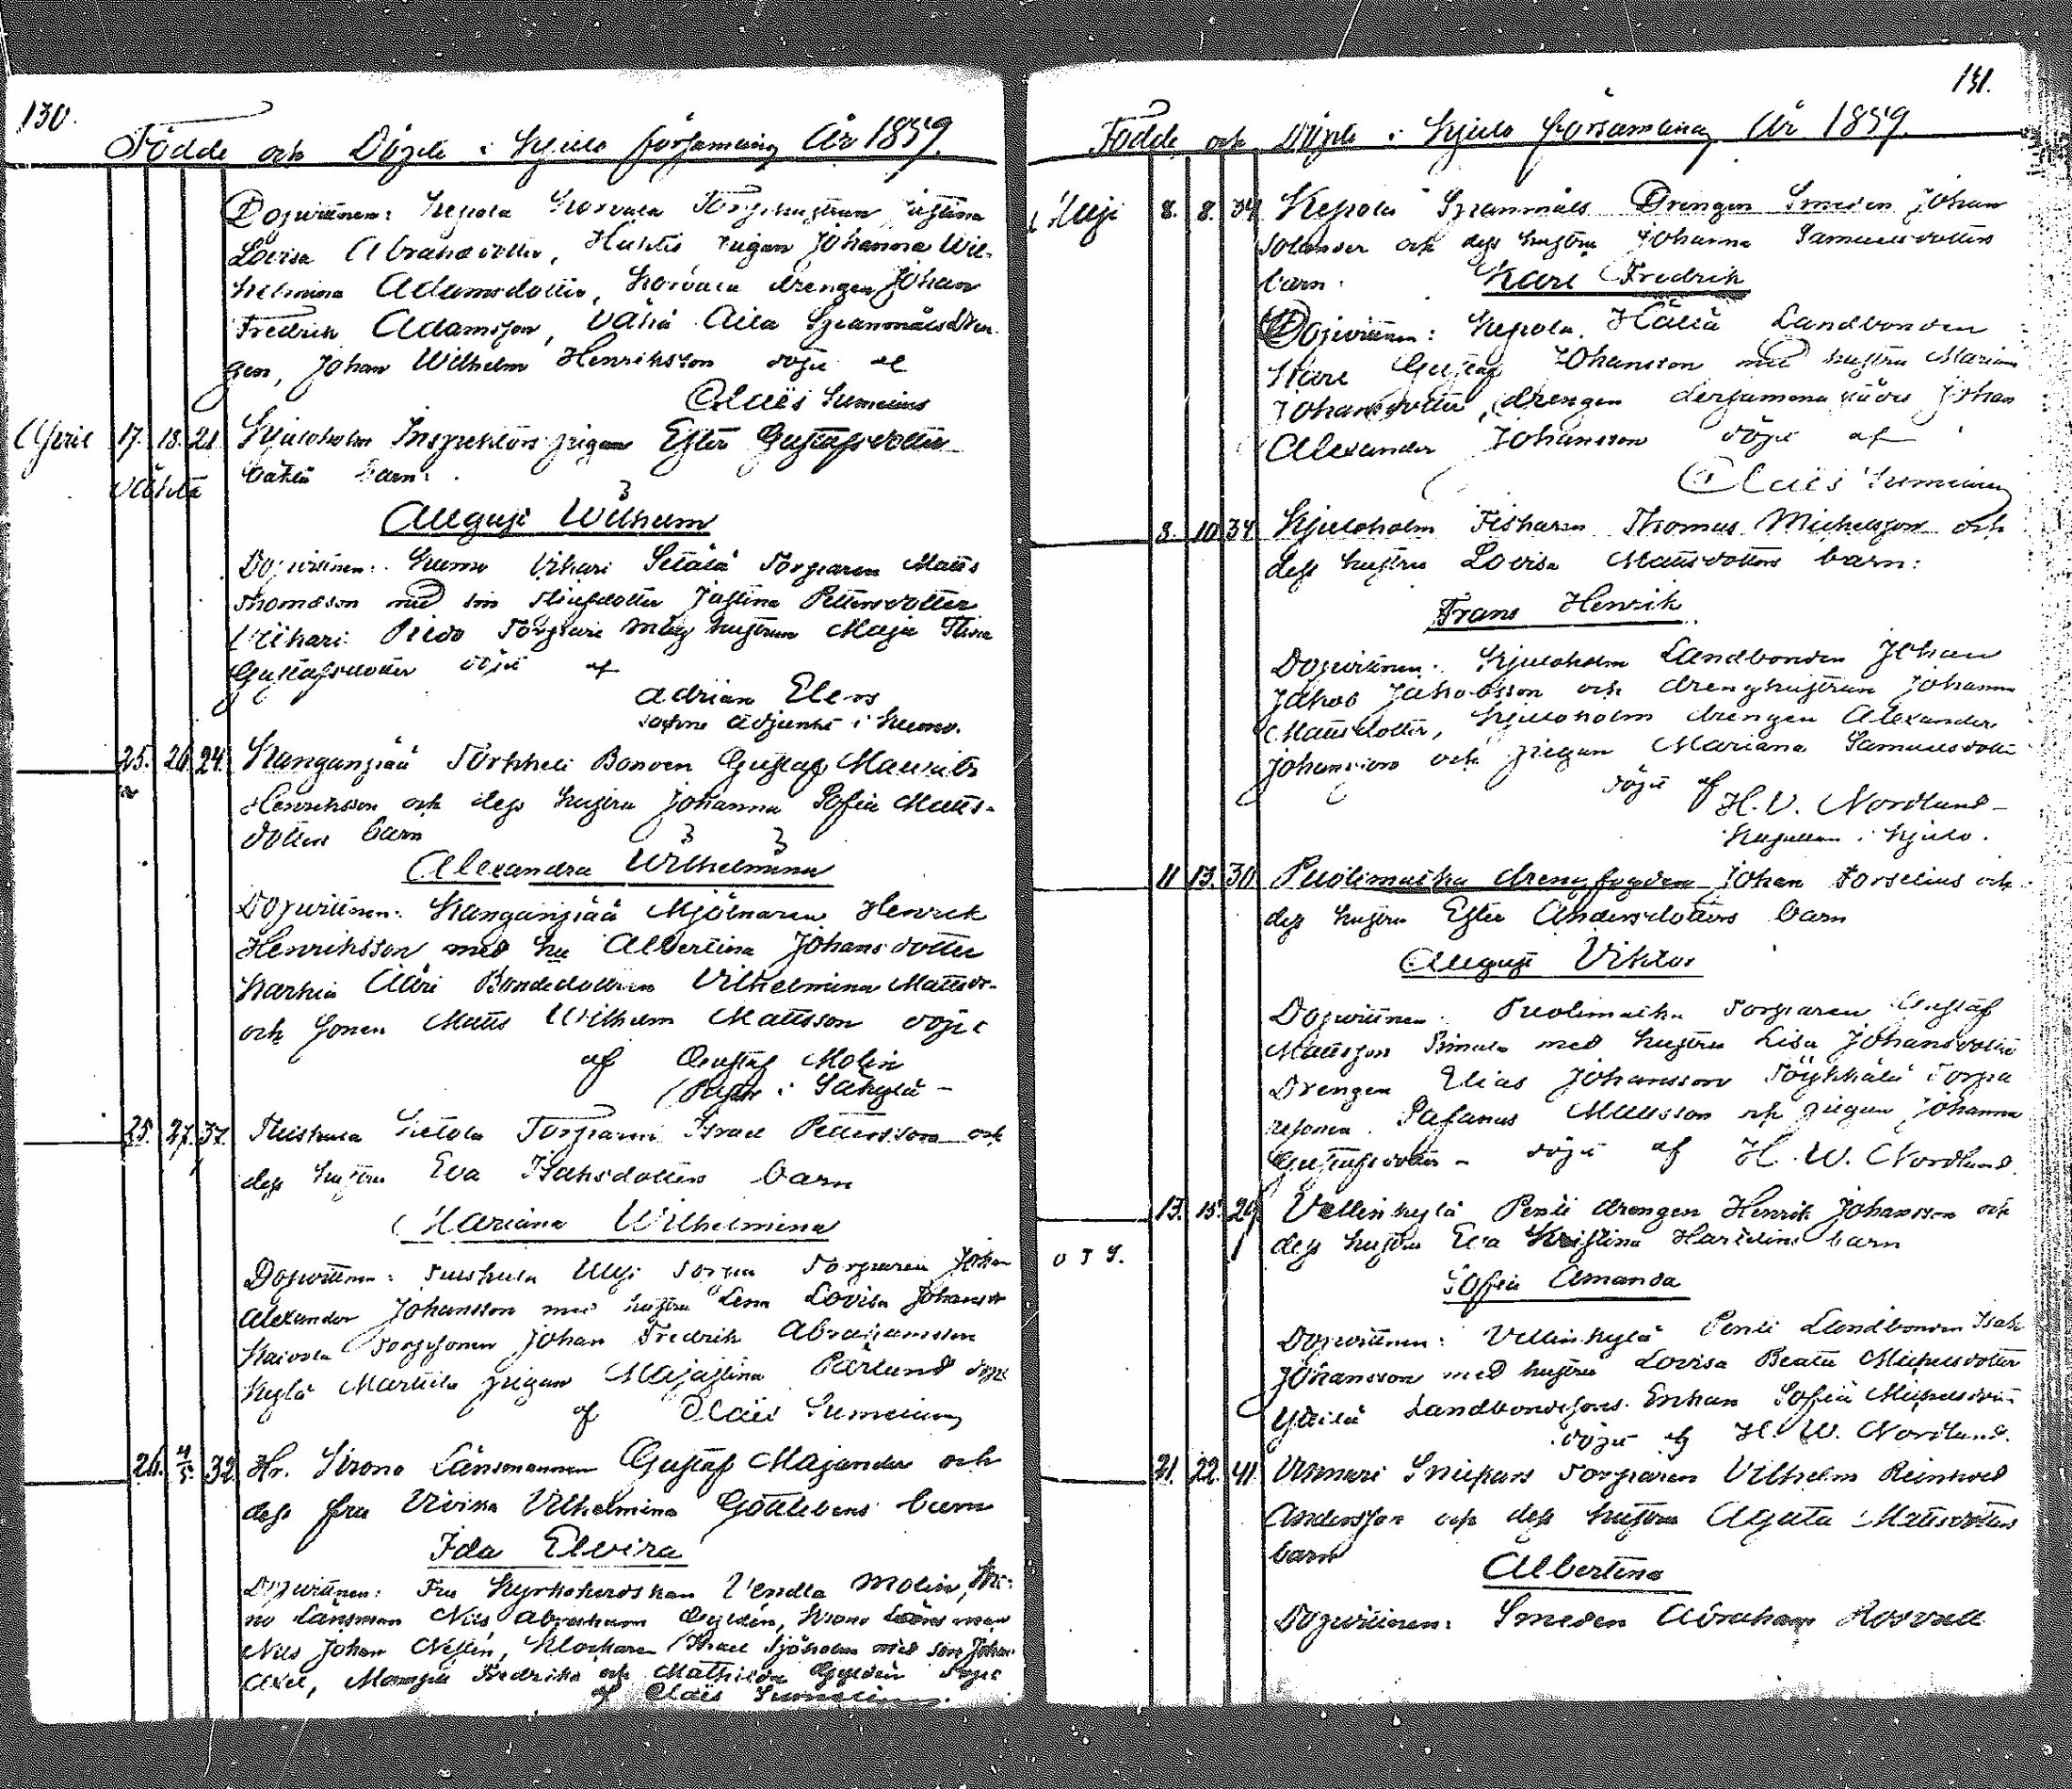 130.
Födde och Döpte i Kjulo församling År 1859.
Dopvittnen: Kepola Korvala Torp hustrun Justina
Lovisa Abrahsdotter, Huhtis pigan Johanna Wil-
helmina Adamsdotter, Korvala drengen Johan
Fredrik Adamsson, Vähä Aila Spannmålsdren-
gen, Johan Wilhelm Henriksson döpt af
Claës Sumelius
April 17. 18. 21. Kjuloholm Inspektors pigan Ester Gustafsdotter
oäkta barn:
oäkta
August Wilhelm
Dopvittnen: Kumo Vihari Setälä Torparen Matts
Thomasson med sin Justina Pettersdotter
Vihari Torpare måg hustrun Maja Stina
Gustafsdotter döpt af
Adrian Elers
sockne adjunkt i Kumo.
25. 26. 24. Kanganpää Torkkeli Bonden Gustaf Mauritz
Henriksson och dess hustru Johanna Sofia Matts-
dotters barn
Alexandra Wilhelmina
Dopvittnen: Kanganpää Mjölnaren Henrik
Henriksson med hu Albertina Johansdotter
Karhia Alări Bondedottern Vilhelmina Mattsdr.
och Sonen Matts Wilhelm Mattsson döpt
af Gustaf Molin
Pastor i Säkylä
25. 27. 37. Torparen Israel Pettersson och
dess hustru Eva Isaksdotters barn
Mariana Wilhelmina
Dopvittnen: Torparen Johan
Alexander Johansson med hustru Lena Lovisa Johansdr
Kaivola Torpsonen Johan Fredrik Abrahamsson
Kylä Marttila pigan Majastina Pärlund döpt
af Claës Sumelius
26. 4/5. 32. Hr. Krono Länsmannen Gustaf Majander och
dess fru Vivika Vilhelmina Gottlebens barn
Ida Elvira
Dopvittnen: Fru Kyrkoherdskan Vendla Molin, Kro-
no Länsman Nils Abraham Gyldén, Krono Länsman
Nils Johan Neslin, Klockaren Israel Sjöholm med son Johan
Axel, Mamsell Fredrika och Mathilda Gyldén döpt
af Claës Sumelius.
131.
Födde och Döpte i Kjulo församling År 1859.
Maji 8. 8. 34. Kepola Spannmåls Drengen Smeden Johan
Solander och dess hustru Johanna Samuelsdotters
barn. Karl Fredrik
Dopvittnen: Kepola Häliä Landbonden
Karl Gustaf Johansson med hustru Mariana
Johansdotter, drengen dersammastädes Johan
Alexander Johansson döpt af
Claës Sumelius
8. 10. 34. Kjuloholm Fiskaren Thomas Michelsson och
dess hustru Lovisa Mattsdotters barn:
Frans Henrik
Dopvittnen: Kjuloholm Landbonden Johan
Jakob Jakobsson och drenghustrun Johanna
Mattsdotter, Kjuloholm drengen Alexander
Johansson och pigan Mariana Samuelsdotter
döpt af H. V. Nordlund
Kapellan i Kjulo.
11 13. 30. Puolimatka drengfogden Johan Forselius och
dess hustru Ester Andersdotters barn
August Viktor
Dopvittnen: Puolimatka Torparen Gustaf
Mattsson Simula med hustru Lisa Johansdotter
Drengen Elias Johansson Töykkälä Torpa-
resonen Mattsson och pigan Johanna
Gustafsdotter döpt af H. W. Nordlund.
13. 15. 29. Vellinkylä Penti drengen Henrik Johansson och
dess hustru Eva Kristina Harldins barn
Sofia Amanda
Dopvittnen: Vellinkylä Penti Landbonden Isak
Johansson med hustru Lovisa Beata Michelsdotter
Yttilä Landbondesons Enkan Sofia Michelsdotter
döpt af H. W. Nordlund.
21. 22. 41. Torparen Vilhelm Reinhold
Andersson och dess hustru Agata Mattsdotters
barn Albertina
Dopvittnen: Smeden Abraham Rosvall